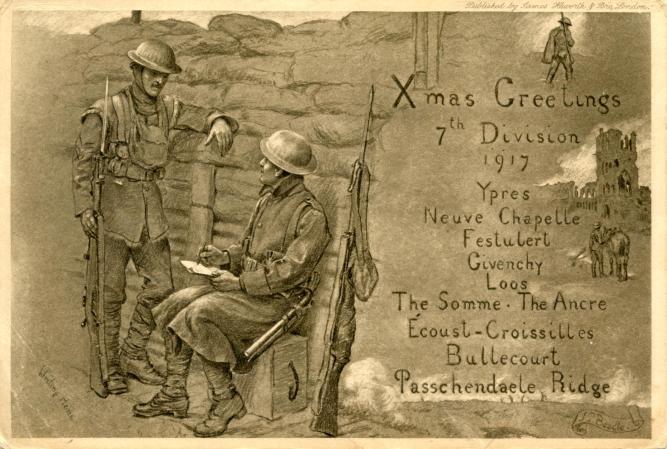 Published by James Haworth & Bro, London.
Xmas Greetings
7th Division
1917
Ypres
Neuve Chapelle
Festubert
Givenchy
Loos
The Somme. The Ancre
Écoust-Croissilles
Bullecourt
Passchendaele Ridge
Writing Home